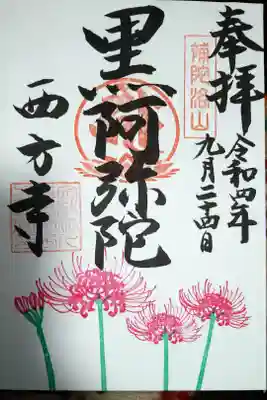 奉拝
補陀洛山
令和四年
九月二十四日
黒阿弥陀
西方寺